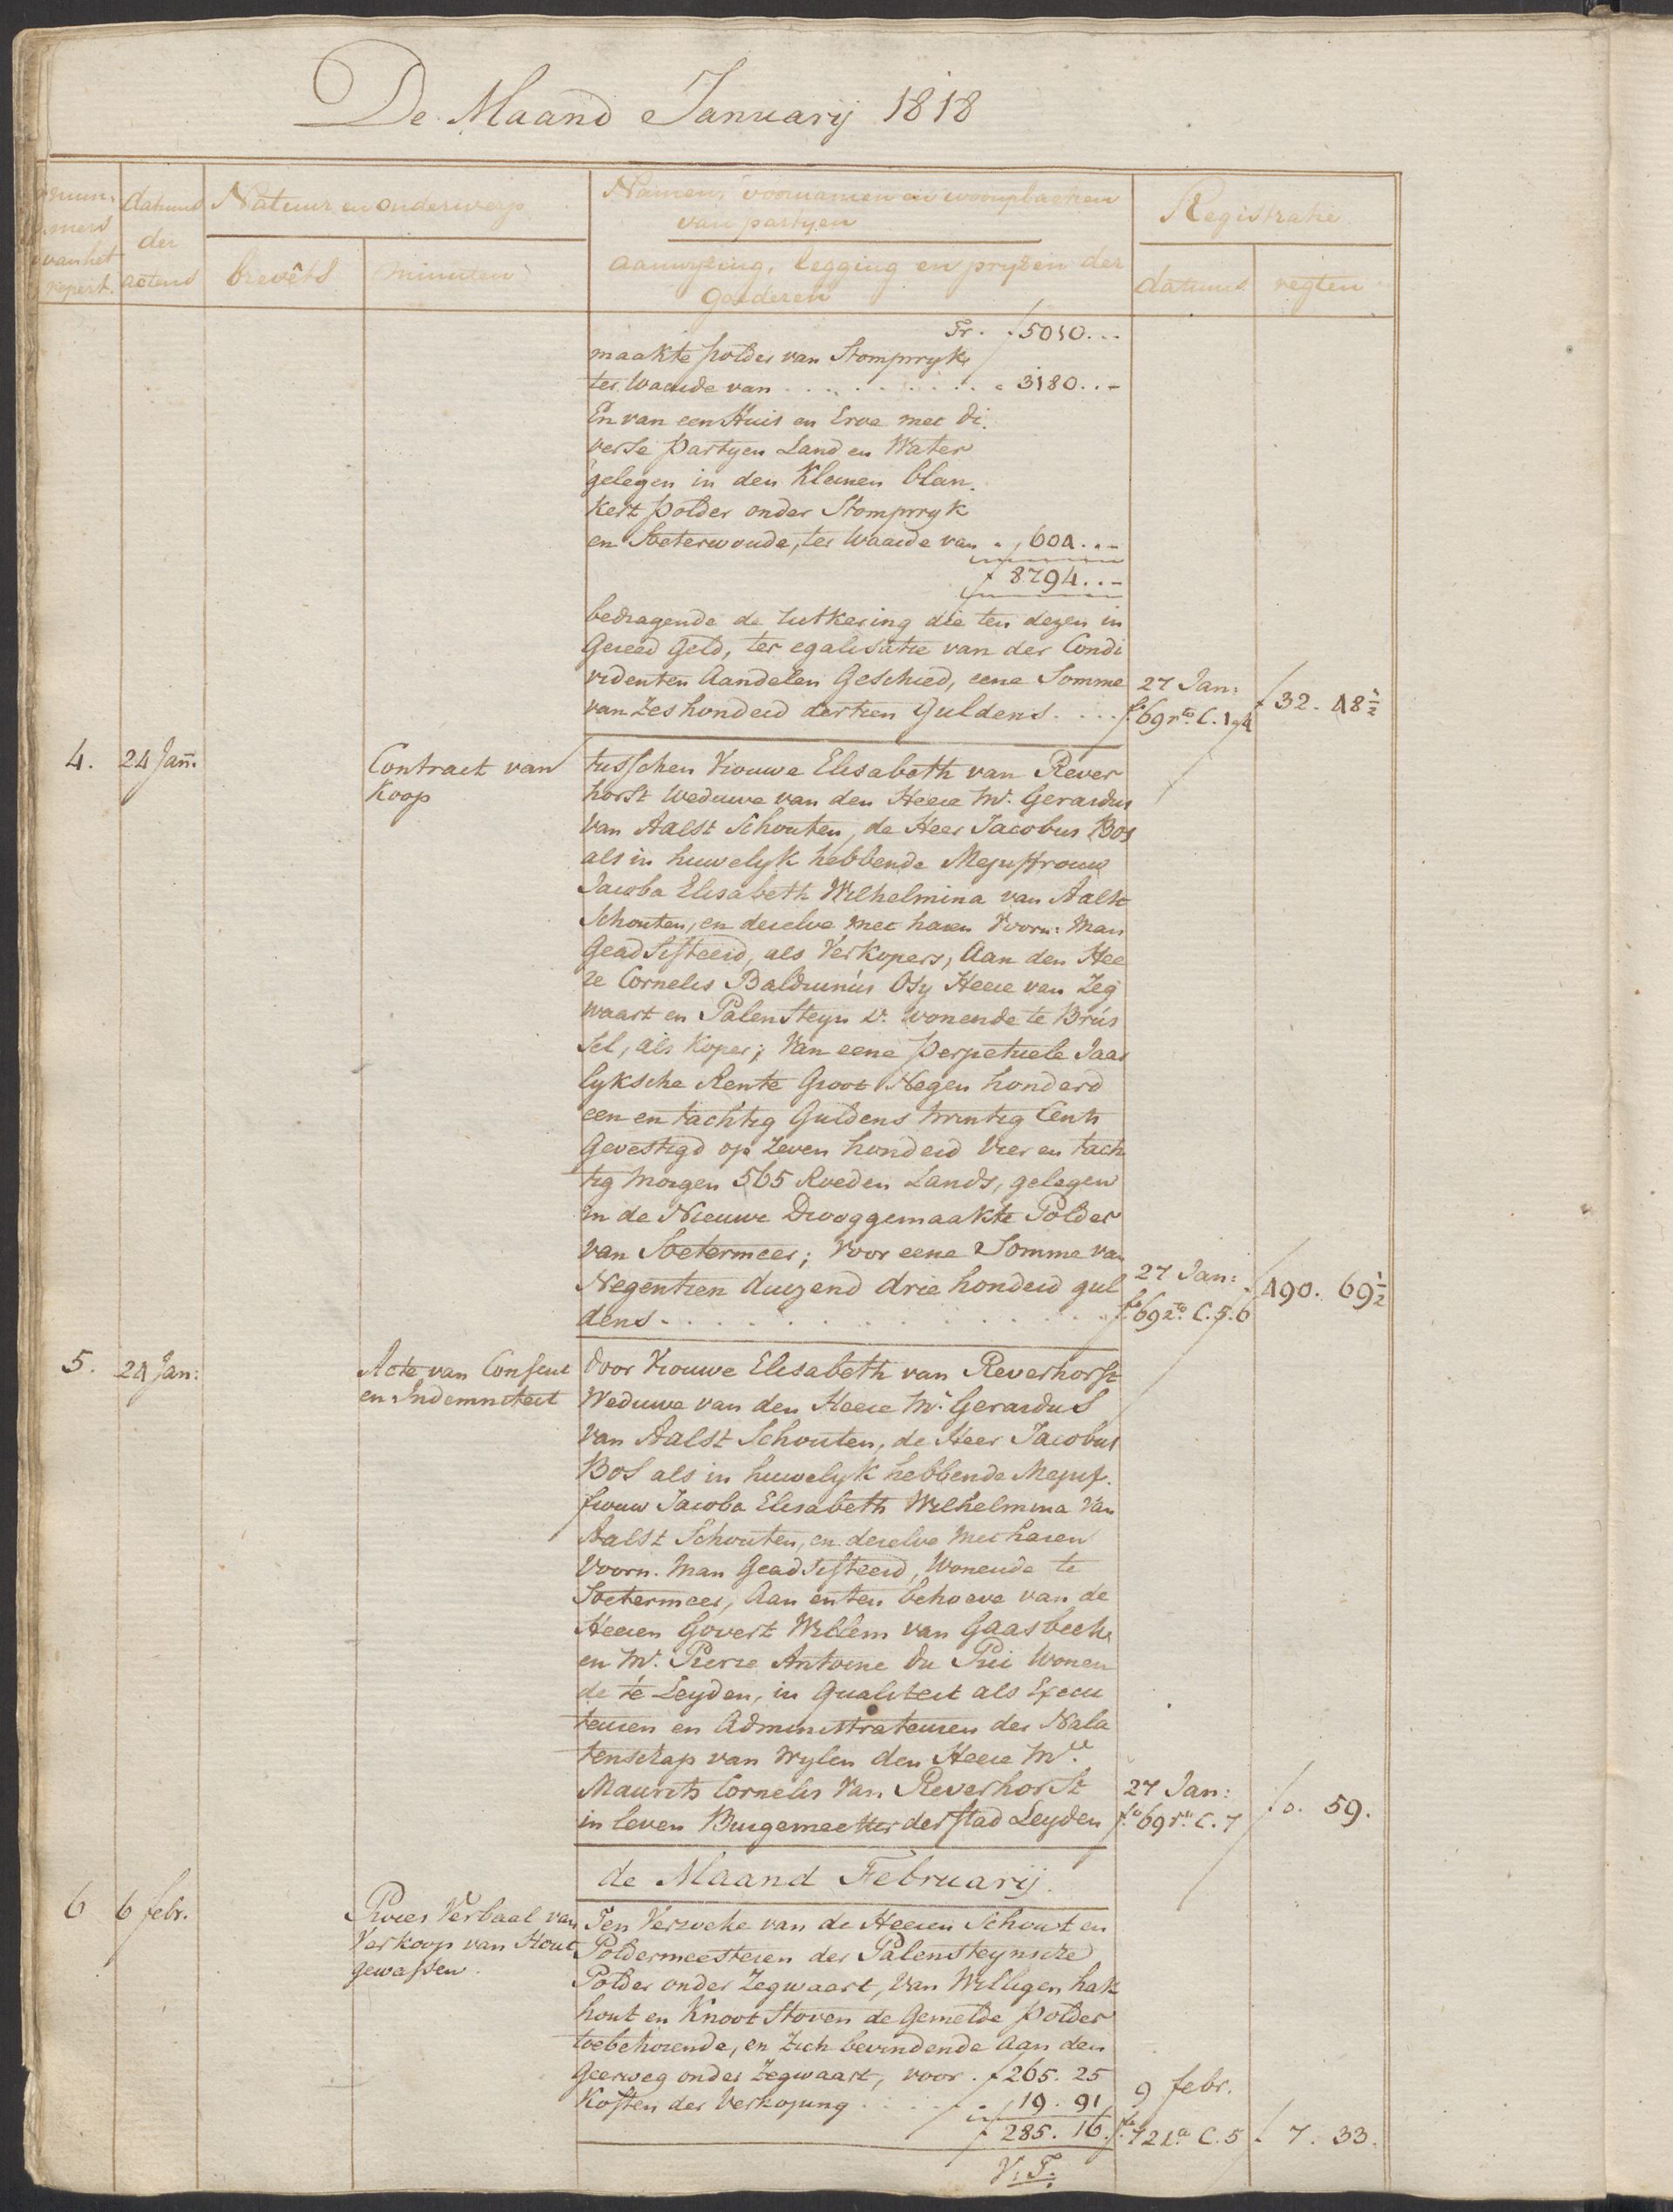 De Maand Januarij 1818
num-
mers
van het
repert.
datums
der
actens
Natuur en onderwerp
brevêts
minuten
Namen, voornamen en woonplaatsen
van partyen
aanwyzing, legging en pryzen der
goederen
Registratie
datums
regten
Tr. f 5010...
maakte polder van Stompwyk
ter Waarde van . . . . . . . . . . 3180..-
En van een Huis en Erve met di-
verse Partyen Land en Water
gelegen in den Kleinen blan-
kert polder onder Stompwyk
en Soeterwoude, ter Waarde van . 604..-
f 8794..-
bedragende de uitkering die ten dezen in
Gereed Geld, ter egalisatie van der Condi
videnten Aandelen Geschied, eene Somme
van Zes honderd dertien Guldens. . . .
27 Jan:
fo 69 ro C. 1 a 4
f 32. 48½
4. 24 Jan:
Contract van
Koop
tusschen Vrouwe Elisabeth van Rever
horst Weduwe van den Heere Mr. Gerardus
van Aalst Schouten, de Heer Jacobus Bos
als in huwelyk hebbende Mejuffrouw
Jacoba Elisabeth Wilhelmina van Aalst
Schouten, en deselve met haren Voorn: Man
Geadsisteerd, als Verkopers, Aan den Hee
re Cornelis Balduinus Osy Heere van Zeg
waart en Palensteyn &. wonende te Brus
sel, als Koper; Van eene Perpetuele Jaar
lyksche Rente Groot Negen honderd
een en tachtig Guldens twintig Cents
Gevestigd op Zeven honderd Vier en tach
tig Morgen 565 Roeden Lands, gelegen
in de Nieuwe Drooggemaakte Polder
van Soetermeer; Voor eene Somme van
Negentien duizend drie honderd gul
dens . . . . . . . . . . . . . . .
27 Jan:
fo 69 ro C. 5.6
f 490. 69½
5. 24 Jan:
Acte van Consent
en Indemniteit
door Vrouwe Elisabeth van Reverhorst
Weduwe van den Heere Mr. Gerardus
van Aalst Schouten, de Heer Jacobus
Bos als in huwelyk hebbende Mejuf-
frouw Jacoba Elisabeth Wilhelmina Van
Aalst Schouten, en deselve met haren
Voorn. Man Geadsisteerd, Wonende te
Soetermeer, Aan en ten behoeve van de
Heeren Govert Willem van Gaasbeek
en Mr. Pierre Antoine du Pui Wonen
de te Leyden, in Qualiteit als Execu
teuren en Administrateuren der Nala
tenschap van Wylen den Heere Mr.
Maurits Cornelis Van Reverhorst
in leven Burgemeester der Stad Leyden
27 Jan:
fo 69 ro C. 7
f 0. 59.
de Maand Februarij.
6 6 febr.
Proces Verbaal van
Verkoop van Hout
gewassen.
Ten Verzoeke van de Heeren Schout en
Poldermeesteren der Palensteynsche
Polder onder Zegwaart, Van Willigen hak
hout en Knoot Stoven de Gemelde Polder
toebehorende, en Zich bevindende Aan den
Geerweg onder Zegwaart, voor . f 265. 25
Kosten der Verkoping . . . . . 19. 91
f 285. 16.
9 febr.
fo 72 ro C. 5
f 7. 33.
V. T.